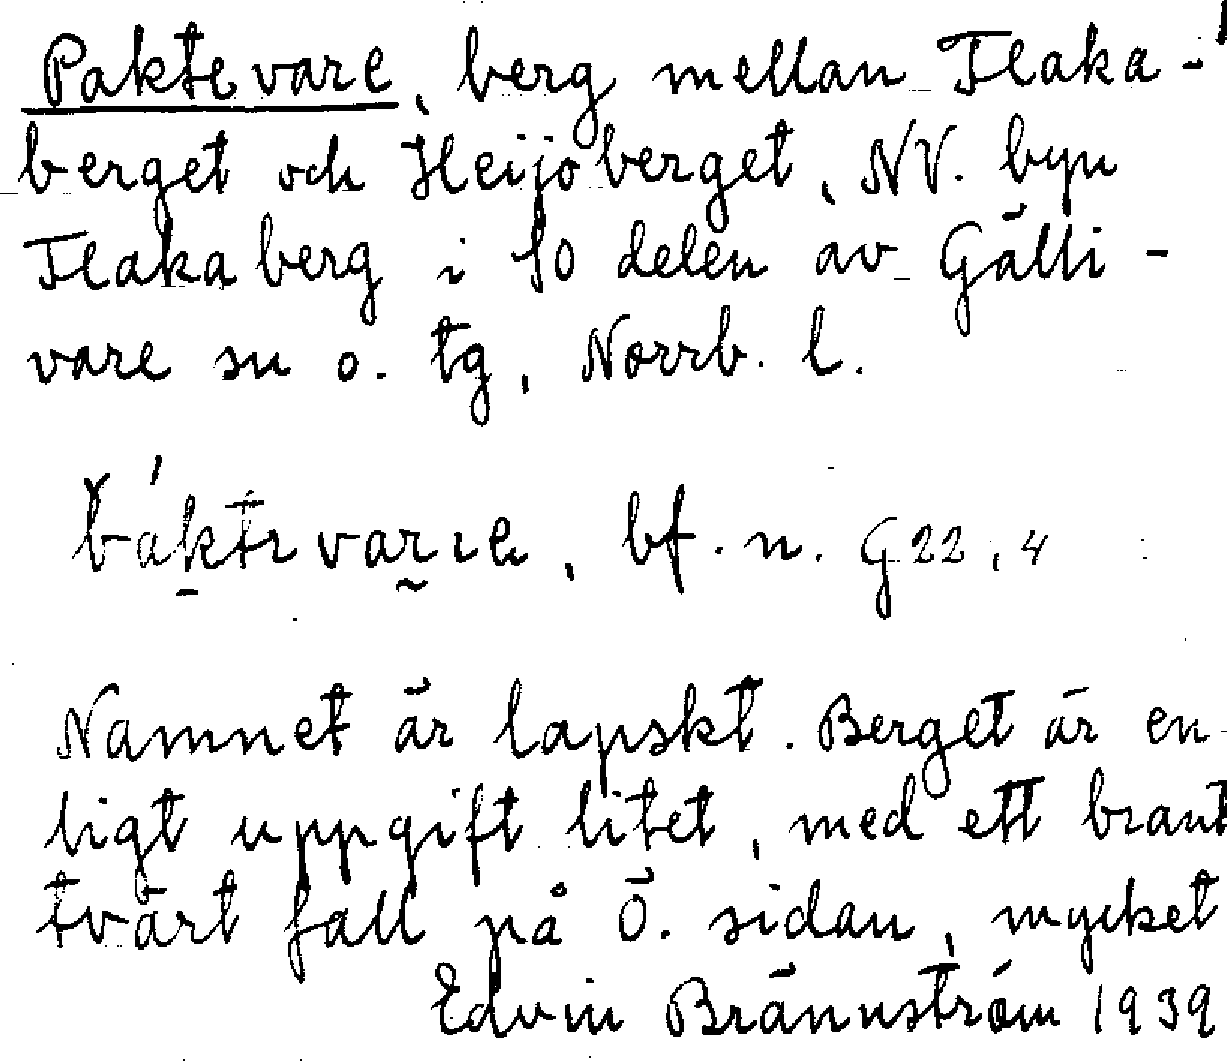 Paktevare, berg mellan Flaka-
berget och Heijoberget, NV. byn
Flakaberg i SO delen av Gälli-
vare sn o. tg, Norrb. l.
bf. n. G 22, 4
Namnet är lapskt. Berget är en-
ligt uppgift litet, med ett brant
tvärt fall på Ö. sidan, mycket
Edvin Brännström 1939